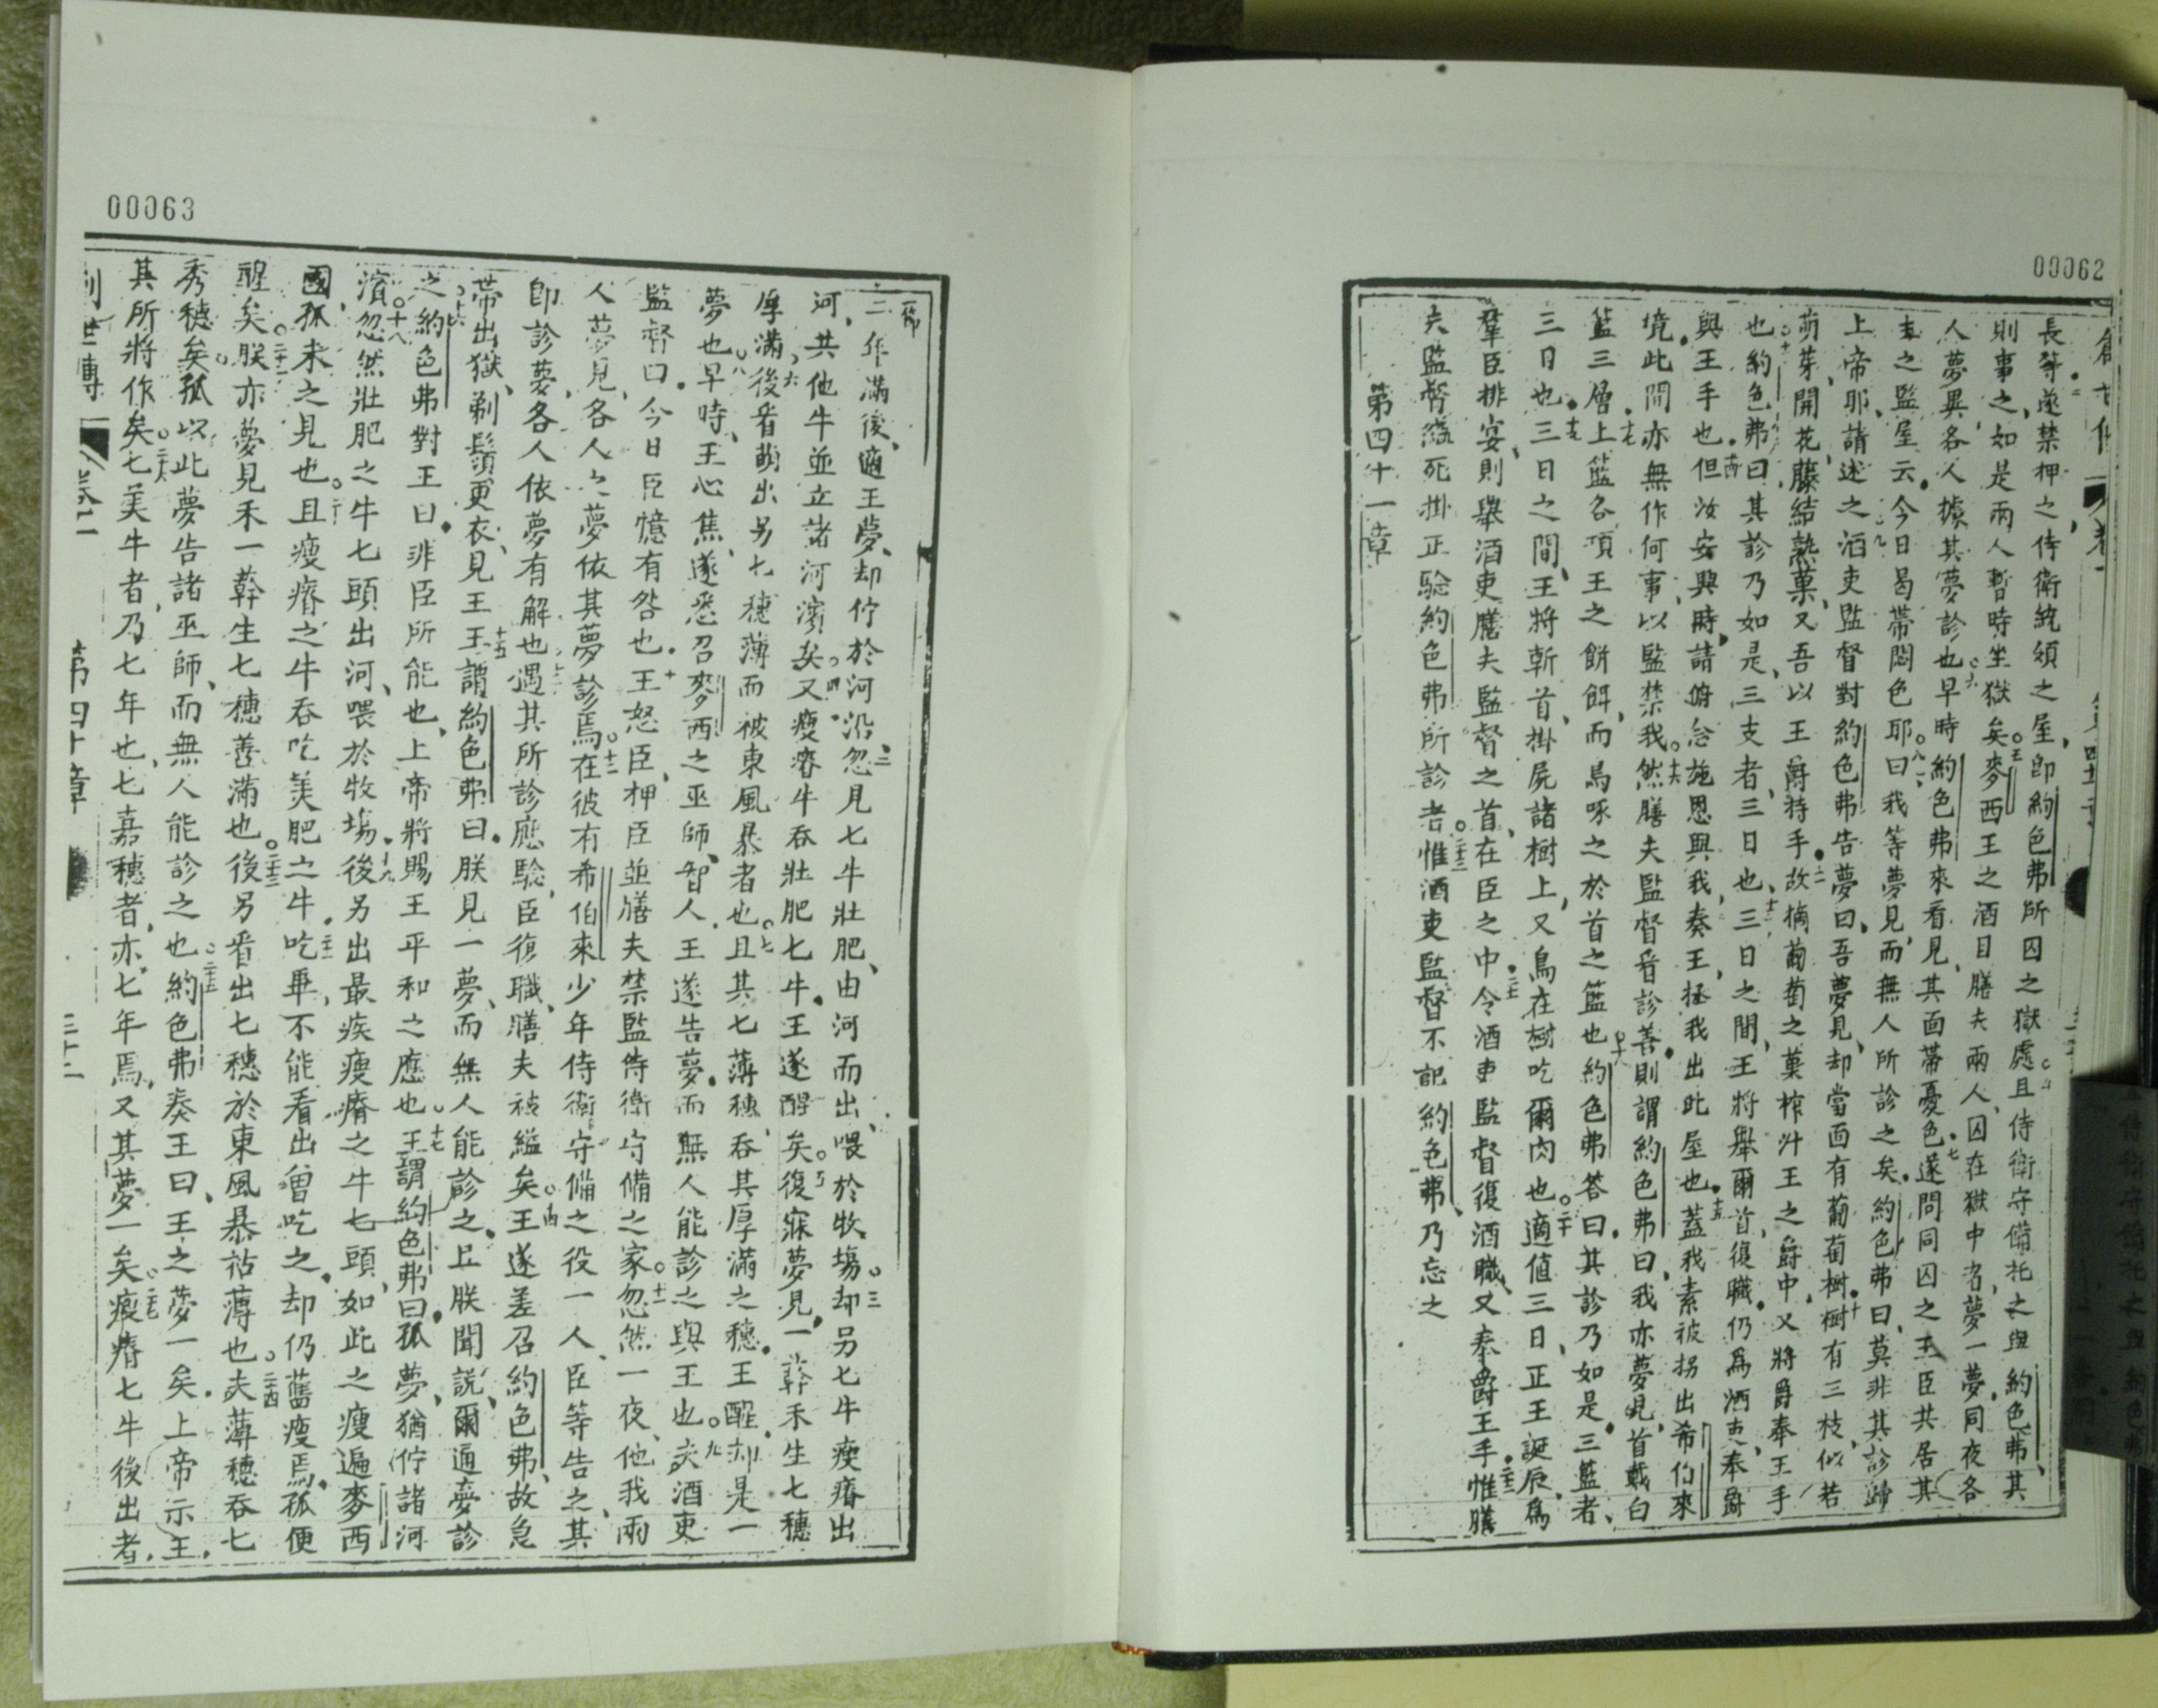 00062
長等遂禁押之侍衛統領之屋、即約色弗所囚之獄處且侍衛守備托之與約色弗、其
則事之、如是兩人暫時坐獄矣。五麥西王之酒目膳夫兩人、囚在獄中者、夢一夢、同夜各
人夢異、各人據其夢診也。六早時約色弗來看見、其面帶憂色。七遂問同囚之王臣共居其
主之監屋云、今日曷帶悶色耶。八曰、我等夢見、而無人所診之矣、約色弗曰、莫非其診歸
上帝耶、請述之。九酒吏監督對約色弗告夢曰、吾夢見、却當面有葡萄樹。十樹有三枝、似若
萌芽、開花、藤結熟菓、又吾以王爵持手。十一故摘葡萄之菓榨汁王之爵中、又將爵奉王手
也。約色弗曰、其診乃如是、三支者、三日也。十三三日之間、王將舉爾首、復職、仍爲酒吏、奉爵
與王手也。十四但汝安興時、請俯念施恩與我、奏王、拯我出此屋也。十五蓋我素被拐出希伯來
境、此間亦無作何事、以監禁我。十六然膳夫監督看診善、則謂約色弗曰、我亦夢見、首戴白
籃三層。十七上籃各項王之餅餌、而鳥啄之於首之籃也。十八約色弗答曰、其診乃如是、三籃者、
三日也。十九三日之間、王將斬首、掛屍諸樹上、又鳥在樹吃爾肉也。二十適値三日、正王誕辰、爲
羣臣排宴、則舉酒吏膳夫監督之首、在臣之中。二十一令酒吏監督復酒職、又奉爵王手。二十二惟膳
夫監督縊死掛正驗約色弗所診者。二十三惟酒吏監督不記約色弗、乃忘之
第四十一章
00063
節
二年滿後、適王夢、却佇於河沿。二忽見七牛壯肥、由河而出、喂於牧塲。三却另七牛瘦瘠出
河、其他牛並立諸河濱矣。四又瘦瘠牛吞壯肥七牛、王遂醒矣。五復寐夢見、一幹禾生七穗
厚滿。六後看萌出另七穗薄而被東風暴者也。七且其七薄穗、吞其厚滿之穗、王醒、却是一
夢也。八早時、王心焦、遂悉召麥西之巫師、智人、王遂告夢、而無人能診之與王也。九夫酒吏
監督曰、今日臣憶有咎也。十王怒臣、押臣並膳夫禁監侍衛守備之家。十一忽然一夜、他我兩
人夢見、各人之夢依其夢診焉。十二在彼有希伯來少年侍衛守備之役一人、臣等告之、其
即診夢、各人依夢有解也。十三遇其所診應驗、臣復職、膳夫被縊矣。十四王遂差召約色弗、故急
帶出獄、剃鬚更衣、見王。十五王謂約色弗曰、朕見一夢、而無人能診之、且朕聞說、爾通夢診
之。十六約色弗對王曰、非臣所能也、上帝將賜王平和之應也。十七王謂約色弗曰、孤夢、猶佇諸河
濱。十八忽然壯肥之牛七頭出河、喂於牧塲。十九後另出最疾瘦瘠之牛七頭、如此之瘦遍麥西
國、孤未之見也。二十且瘦瘠之牛吞吃美肥之牛。二十一吃畢、不能看出曾吃之、却仍舊瘦焉、孤便
醒矣。二十二朕亦夢見禾一幹生七穗善滿也。二十三後另看出七穗於東風暴祜薄也。二十四夫薄穗吞七
秀穗矣、孤以此夢告諸巫師、而無人能診之也。二十五約色弗奏王曰、王之夢一矣、上帝示王、
其所將作矣。二十六七美牛者、乃七年也、七嘉穗者、亦七年焉、又其夢一矣。二十七瘦瘠七牛後出者、
卷一
第四十章
三十二